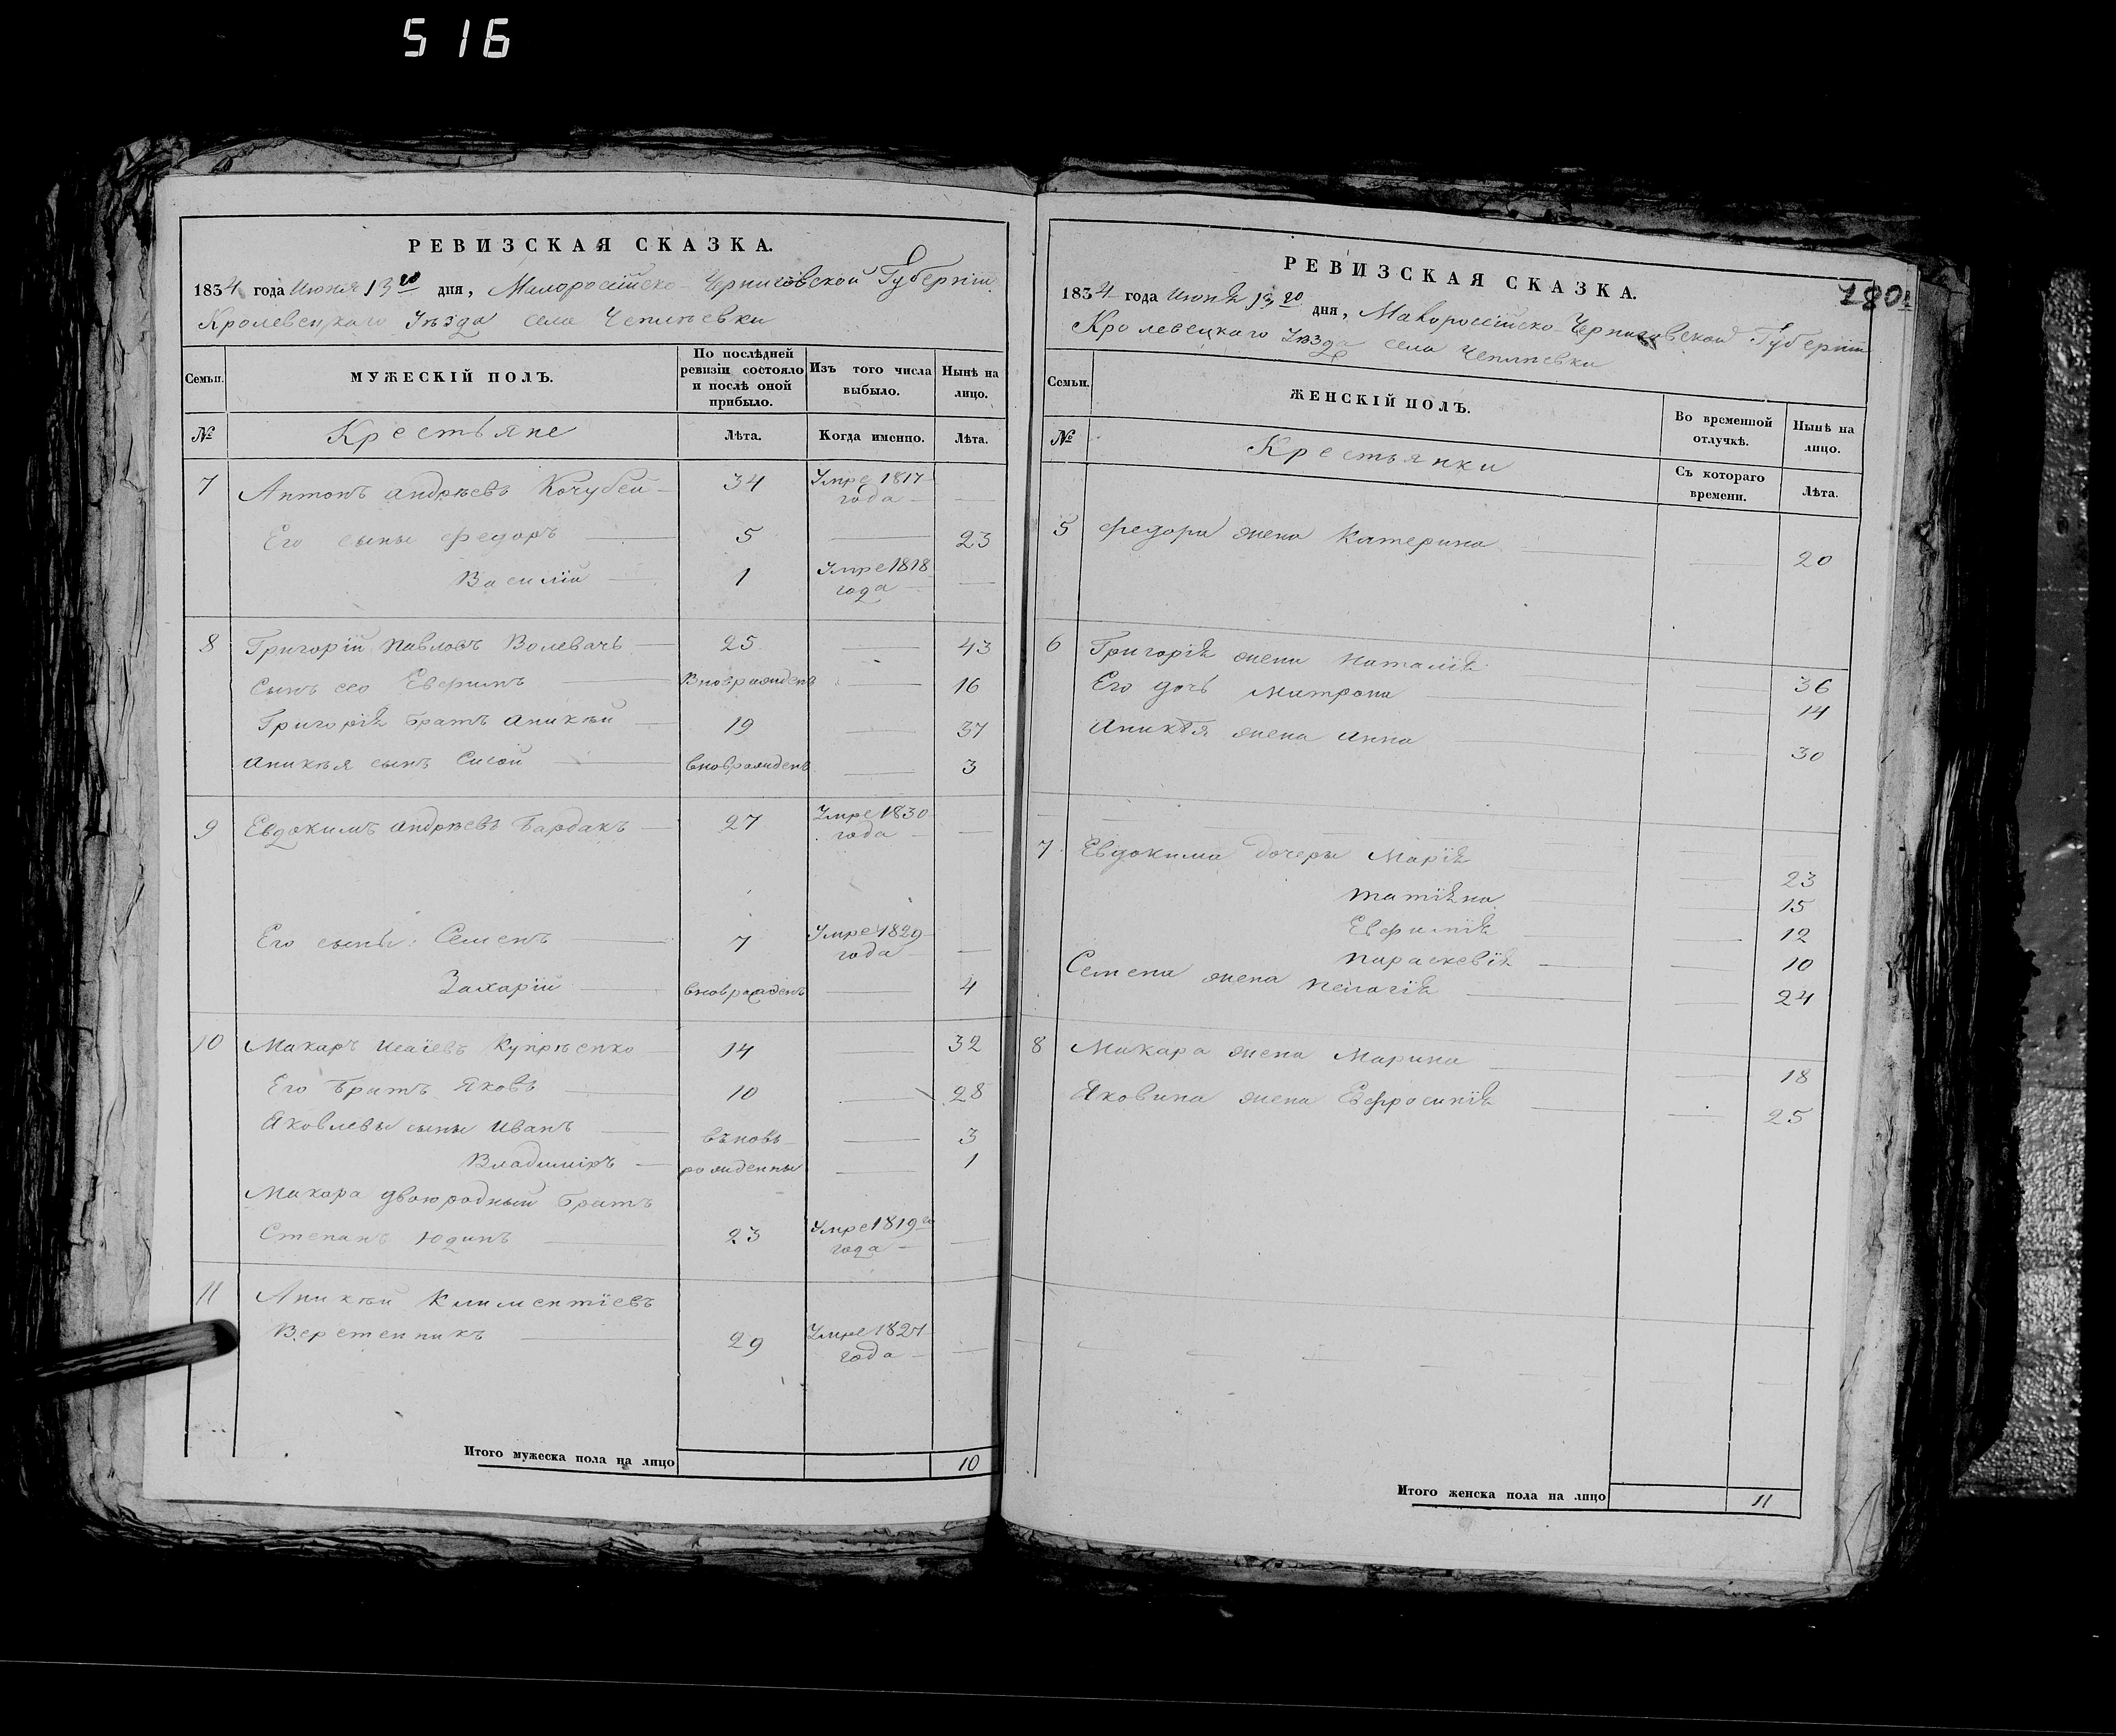 516
РЕВИЗСКАЯ СКАЗКА.
1834 года Июня 13го дня, Малоросійско-Черниговской Губерніи
Кролевецкаго Уѣзда села Чепліевки
Семьи.
МУЖЕСКІЙ ПОЛЪ.
По послѣдней ревизіи состояло и послѣ оной прибыло.
Изъ того числа выбыло.
Нынѣ на лицо.
№ Крестьяне Лѣта. Когда именно. Лѣта.
7 Антонъ Андрѣевъ Кочубей 34 Умре 1817 года
Его сыны Федоръ 5 — 23
Василій 1 Умре 1818 года
8 Григорій Павловъ Волевачъ 25 — 43
Сынъ его Евфимъ Вноврожденъ — 16
Григорія братъ Аникѣй 19 — 37
Аникѣя сынъ Сисой вноврожденъ — 3
9 Евдокимъ Андрѣевъ Бардакъ 27 Умре 1830 года —
Его сыны: Семенъ 7 Умре 1829 года —
Захарій вноврожденъ — 4
10 Макаръ Исаіевъ Купрѣенко 14 — 32
Его братъ Яковъ 10 — 28
Яковлевы сыны Иванъ въновь — 3
Владиміръ рожденны — 1
Макара двоюродный братъ
Степанъ Юдинъ 23 Умре 1819го года —
11 Аникѣй Климентіевъ
Веретенникъ 29 Умре года —
Итого мужеска пола на лицо 10
РЕВИЗСКАЯ СКАЗКА.
180
1834 года Июня 13го дня, Малоросійско-Черниговской Губерніи
Кролевецкаго Уѣзда села Чепліевки
Семьи.
ЖЕНСКІЙ ПОЛЪ.
Во временной отлучкѣ.
Нынѣ на лицо.
№ Крестьянки Съ котораго времени. Лѣта.
5 Федора жена Катерина — 20
6 Григорія жена Наталія — 36
Его дочь Матрона — 14
Аникѣя жена Анна — 30
7 Евдокима дочеры Марія — 23
Татіяна — 15
Евфимія — 12
Параскевія — 10
Семена жена Пелагія — 24
8 Макара жена Марина — 18
Яковина жена Евфросинія — 25
Итого женска пола на лицо 11